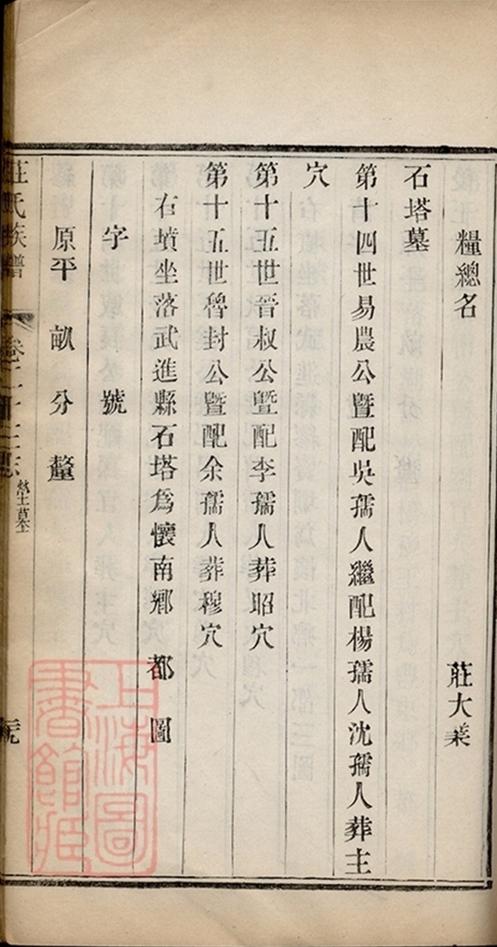 糧總名 莊大業
石塔墓
第十四世易農公曁配吳孺人繼配楊孺人沈孺人葬主
穴
第十五世晉叔公曁配李孺人葬昭穴
第十五世魯封公曁配余孺人葬穆穴
右墳坐落武進縣石塔爲懷南鄉 都 圖
字 號
原平 畝 分 釐
莊氏族譜 卷二十三 塋墓
上海圖書館藏